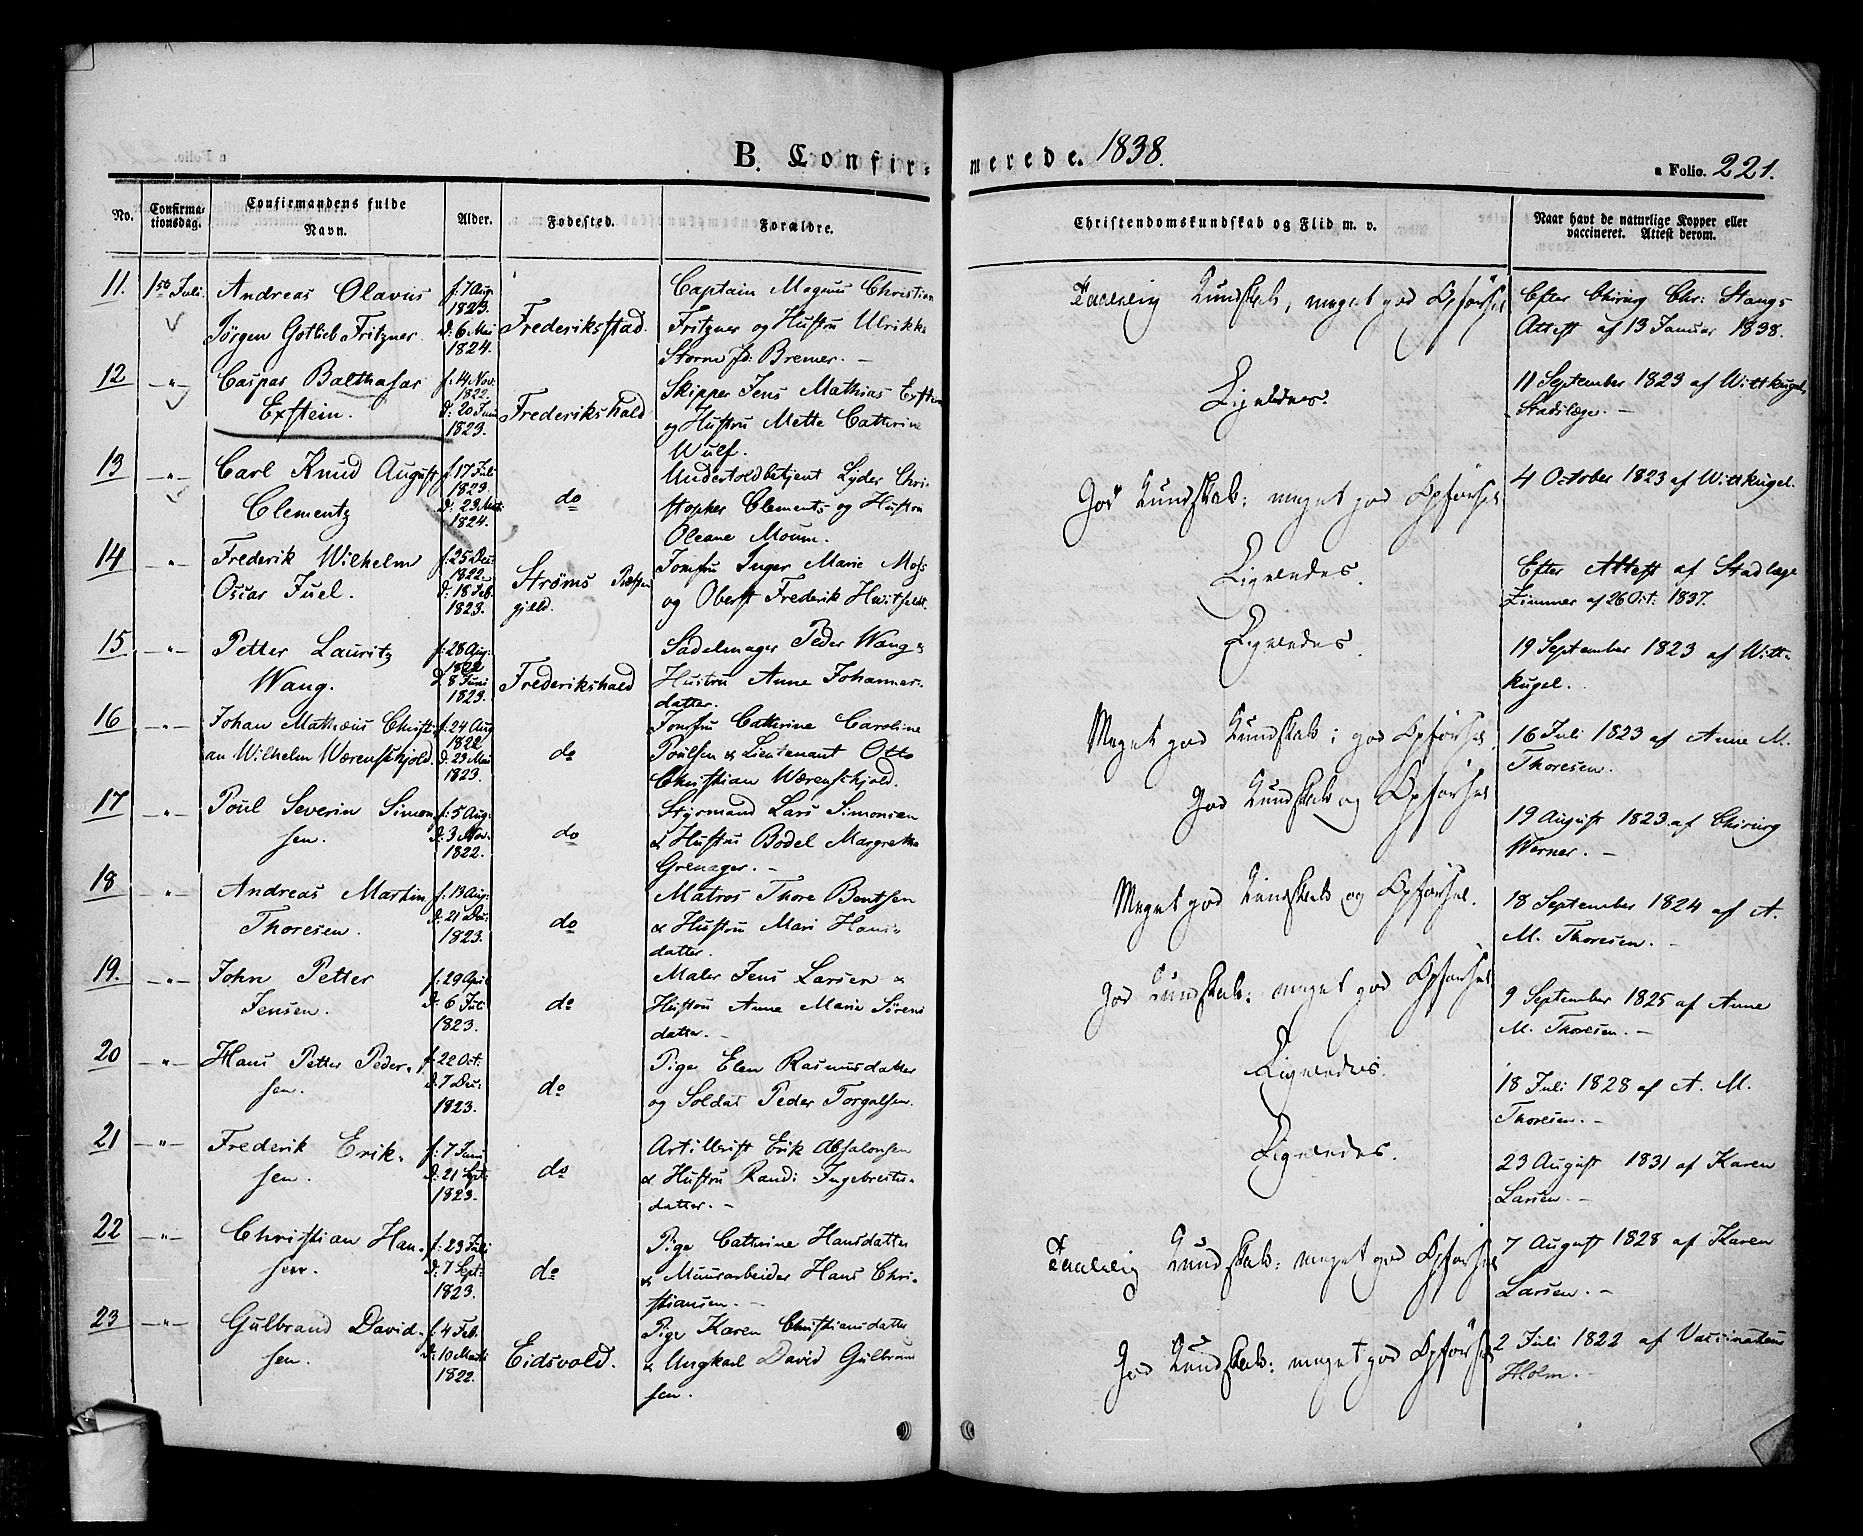 B. Confirmerede. 1838.
a Folio. 221.
No. Confirmationsdag. Confirmandens fulde Navn. Alder. Fødested. Forældre. Christendomskundskab og Flid m. v. Naar havt de naturlige Kopper eller vaccineret. Attest derom.
11. 1ste Juli. Andreas Olavus f: 7 Aug Captain Magnus Christian Taalelig Kundskab, meget god Opførsel Efter Chirurg Chr: Stangs
Jørgen Gotlieb Fritzner. 1823. d: 6 Mai 1824. Frederiksstad. Fritzner og Hustru Ulrikke Attest af 13 Januar 1838.
Storm fd: Bremer. —
12 —"— Caspar Balthasar f: 14 Nov. 1822. Skipper Jens Mathias Exstein Ligeledes. 11 September 1823 af Wittkugel,
Exstein. d: 20 Juni 1823. Frederikshald og Hustru Mette Cathrine Stadslæge. —
Wulf.
13 —"— Carl Knud August f: 17 Juli 1823 Undertoldbetjent Lyder Chri- God Kundskab: meget god Opførsel 4 October 1823 af Wittkugel.
Clementz d: 23 Mai 1824. do stopher Clements og Hustru
Oleane Moum.
14 —"— Frederik Wilhelm f: 25 Dec: 1822. Jomfru Inger Marie Moss Ligeledes. Efter Attest af Stadlæge
Oscar Juel. d: 18 Feb. 1823. Strøms Præstegjeld. og Oberst Frederik Hvitfeldt. Zimmer af 26 Oct: 1837.
15 —"— Petter Lauritz f: 28 Aug: 1822 Sadelmager Peder Wang & Ligeledes. 19 September 1823 af Witt-
Wang. d: 8 Juni 1823. Frederikshald Hustru Anne Johannes- kugel.
datter.
16 —"— Johan Mathæus Christi- f: 24 Aug 1822 Jomfru Cathrine Caroline Meget god Kundskab; god Opførsel. 16 Juli 1823 af Anne M.
an Wilhelm Wærenskjold. d: 23 Mai 1823. do Poulsen & Lieutenant Otto Thoresen.
Christian Wærenskjold.
17 —"— Poul Severin Simon- f: 5 Aug: Styrmand Lars Simonsen God Kundskab og Opførsel 19 August 1823 af Chirurg
sen. d: 3 Nov. 1822. do & Hustru Bodel Margrethe Werner. —
Grenager. —
18 —"— Andreas Martin f: 13 Aug: Matros Thore Bentsen Meget god Kundskab og Opførsel. 18 September 1824 af A.
Thoresen. d: 21 Dec: 1823. do & Hustru Mari Hans- M. Thoresen. —
datter.
19. —"— John Petter f: 29 April Maler Jens Larsen & God Kundskab: meget god Opførsel 9 September 1825 af Anne
Jensen. d: 6 Jul 1823. do Hustru Anne Marie Sørens M. Thoresen. —
datter. —
20 —"— Hans Petter Peder- f: 22 Oct. Pige Elen Rasmusdatter Ligeledes. 18 Juli 1828 af A. M.
sen. d: 7 Dec: 1823. do og Soldat Peder Torgalsen. Thoresen. —
21 —"— Frederik Erik- f: 7 Juni Artillerist Erik Absalonsen Ligeledes. 23 August 1831 af Karen
sen. d: 21 Spt: 1823. do & Hustru Randi Ingebrets- Larsen. —
datter. —
22 —"— Christian Han- f: 23 Juli Pige Cathrine Hansdatter Taalelig Kundskab: meget god Opførsel 7 August 1828 af Karen
sen. d: 7 Sept: 1823. do & Muurarbeider Hans Chri- Larsen. —
stiansen. —
23 —"— Gulbrand David- f: 4 Feb. Pige Karen Christiansdatter God Kundskab: meget god Opførsel 2 Juli 1822 af Vaccinateur
sen. d: 10 Marts 1822. Eidsvold. & Ungkarl David Gulbran Holm. —
sen.